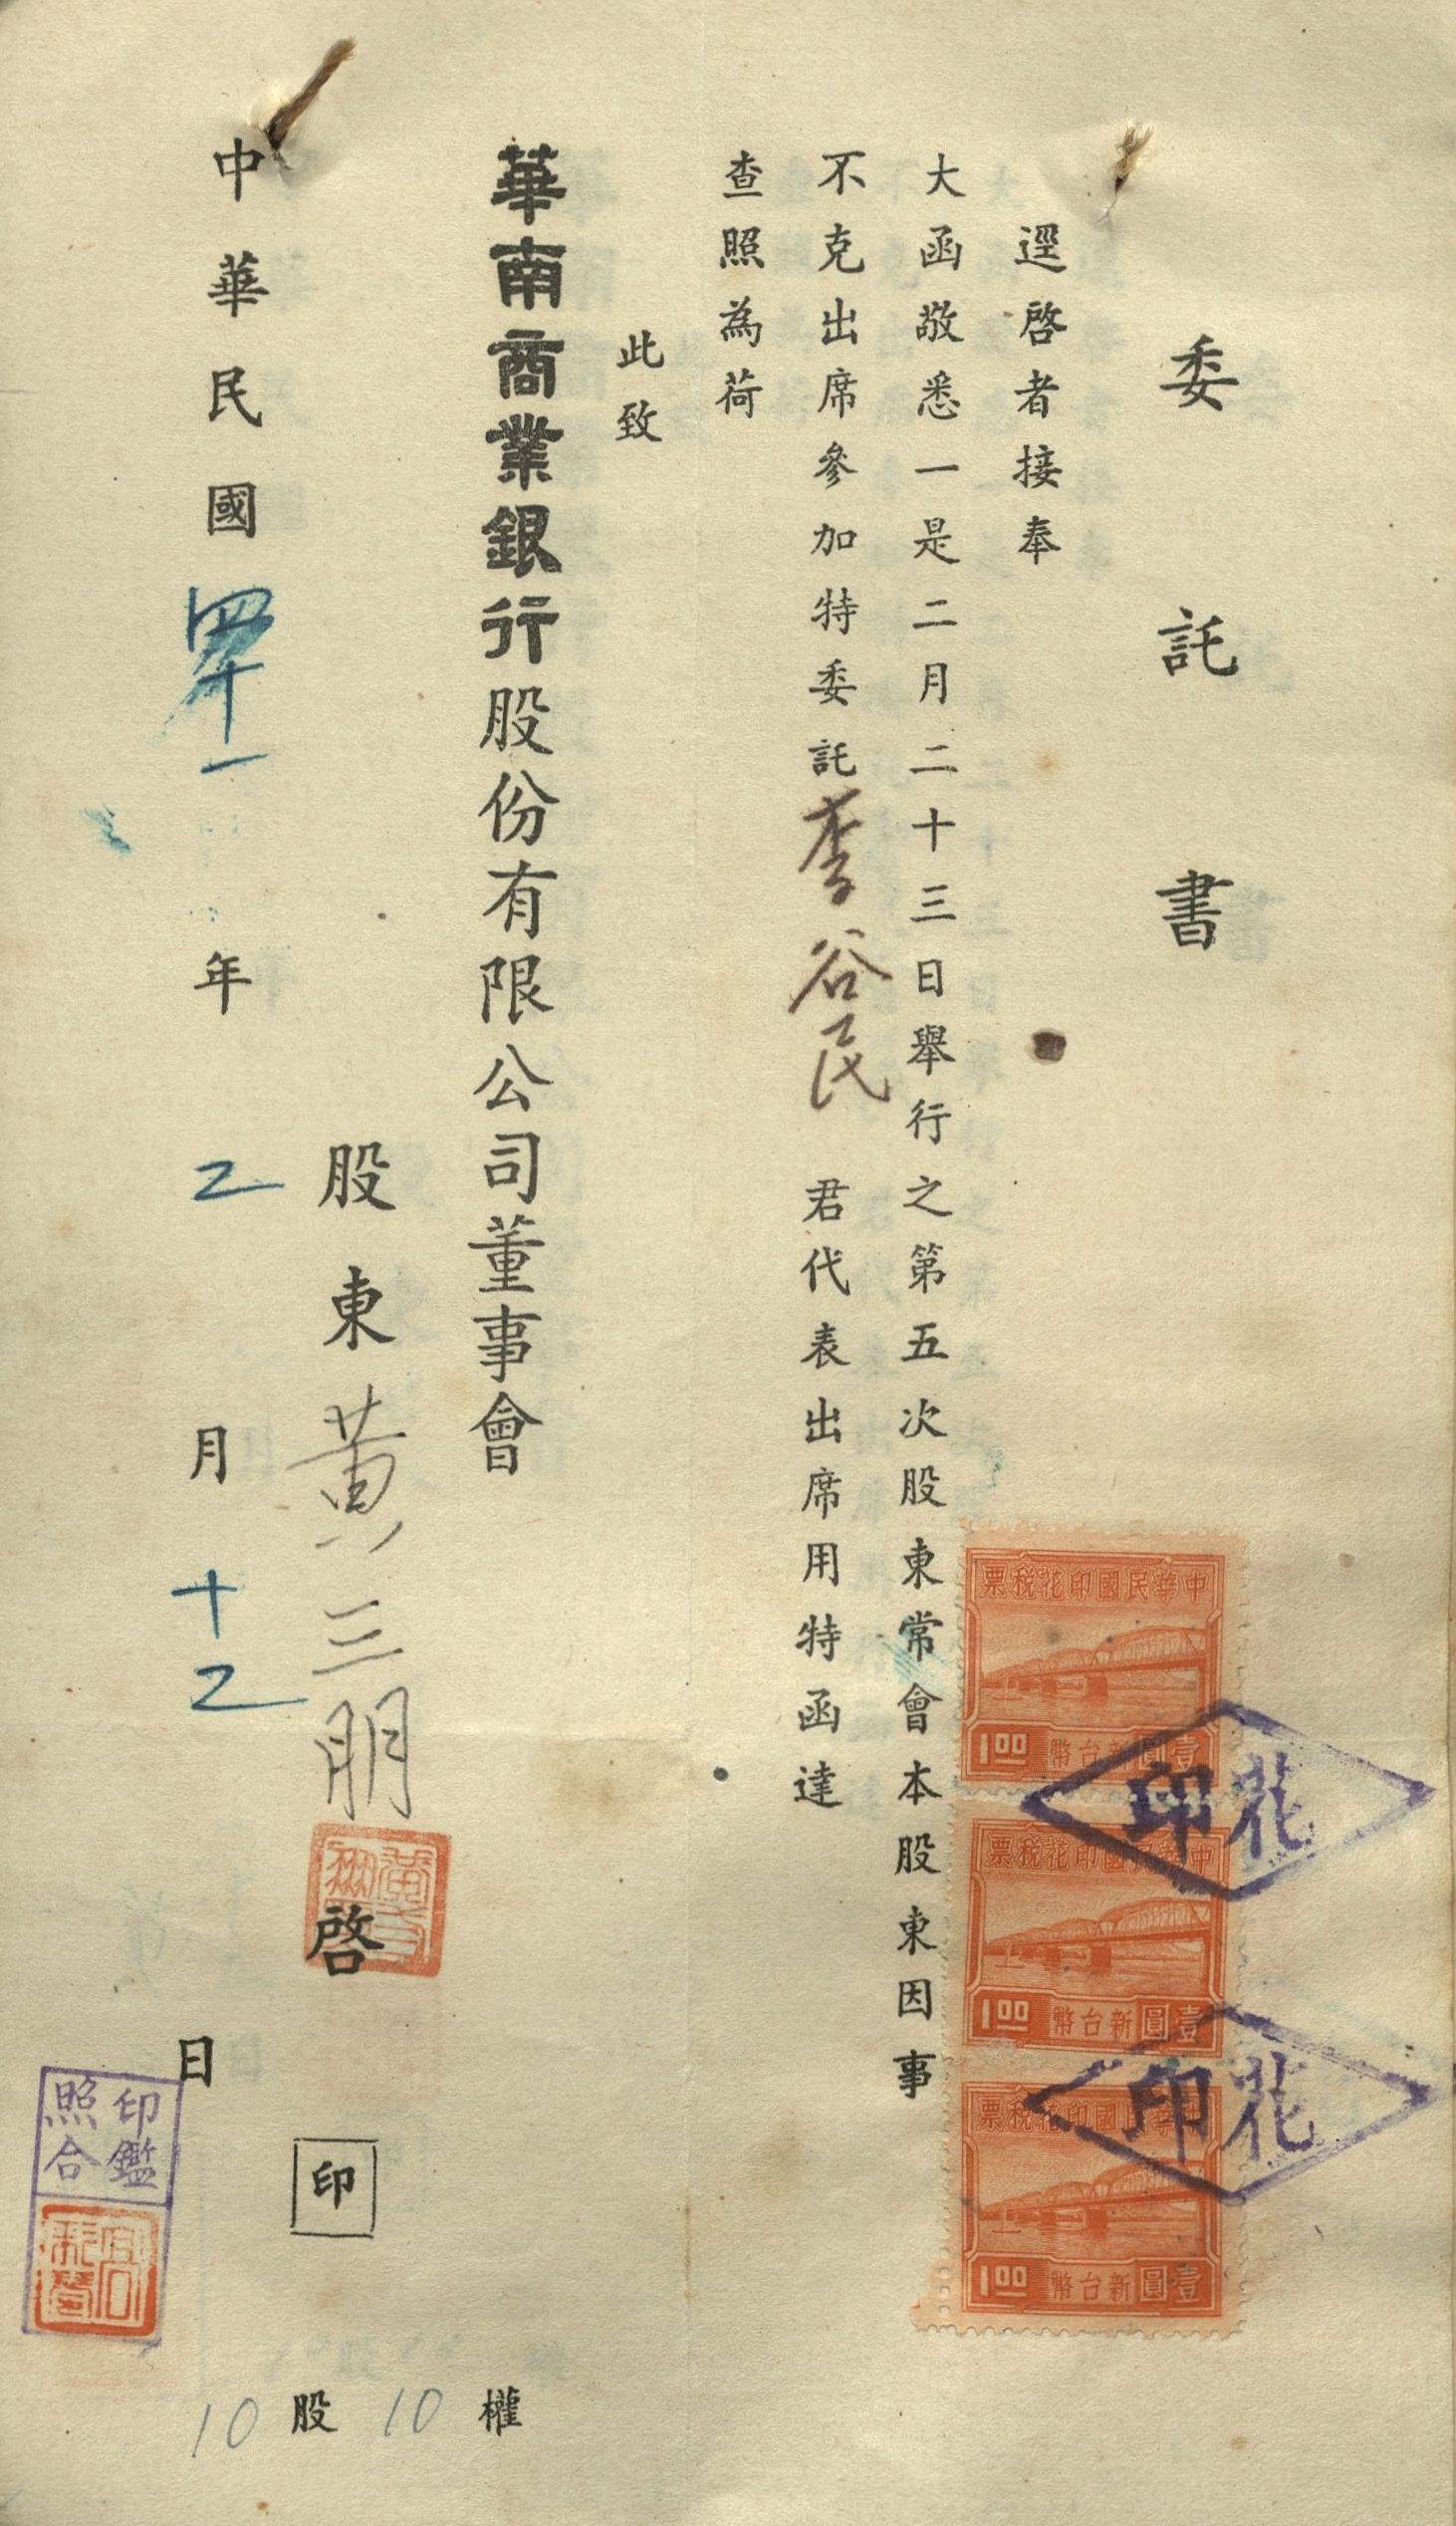 委託書
逕啓者接奉
大函敬悉一是二月二十三日舉行之第五次股東常會本股東因事
不克出席參加特委託李谷民君代表出席用特函達
查照為荷
此致
華南商業銀行股份有限公司董事會
股東黃三朋啓
印
中華民國四十一年2月十2日
權10股10
印鑑
照合
中華民國印花稅票
1.00
壹圓新台幣
中華民國印花稅票
1.00
壹圓新台幣
中華民國印花稅票
1.00
壹圓新台幣
花印
花印